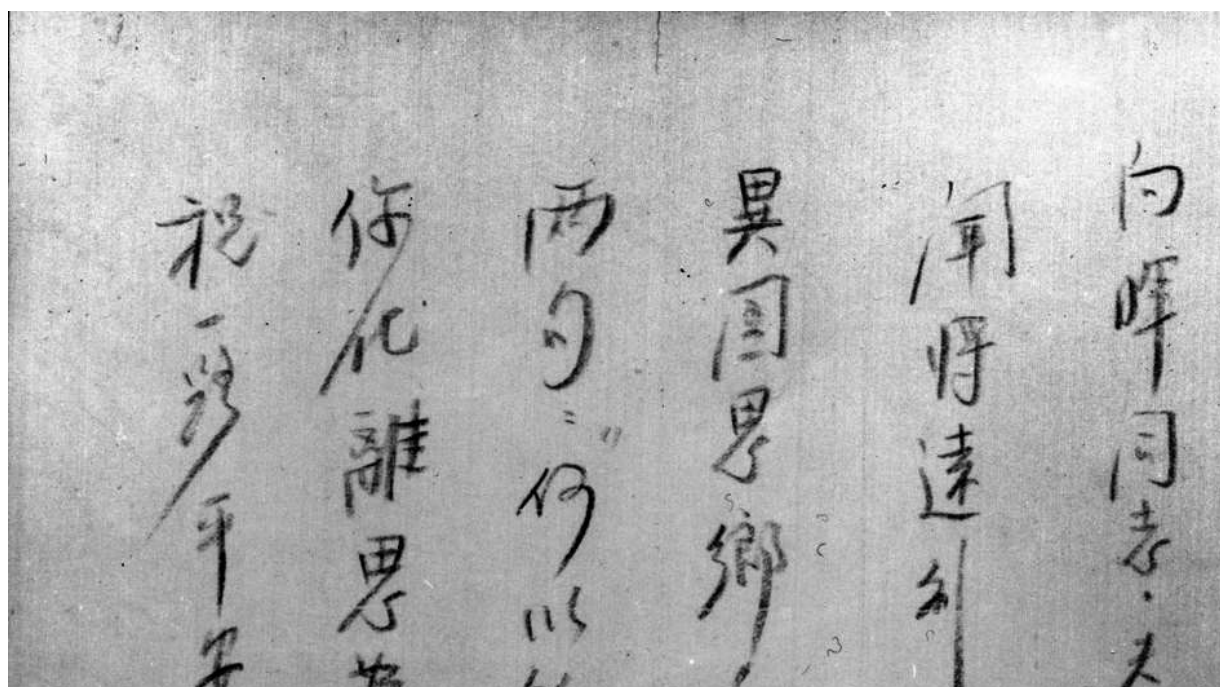 向晖同志.夫
闻将远别
異国思鄉
两句："何以
你化離思
祝一路平安